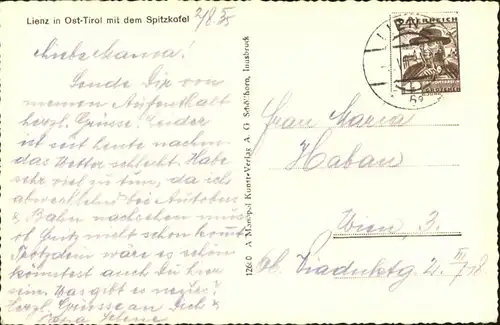 Lienz in Ost-Tirol mit dem Spitzkofel
2/8. 35
Liebe Mama!
Sende Dir von
meinem Aufenthalt
herzl. Grüsse. Leider
ist seit heute nachm.
das Wetter schlecht. Habe
sehr viel zu tun, da ich
abwechselnd bei Autobus
& Bahn nachsehen muss
ob Fritz nicht schon kommt
Trotzdem wäre es schön
könntest auch Du hier
sein. Was gibt es neues?
Herzl. Grüsse an Dich &
Papa
12600 A Monopol Kunst-Verlag A. G. Schöllhorn, Innsbruck
LIENZ
ÖSTERREICH
Frau Maria
Haban
Wien, 3.
Viaduktg. 2. III/18